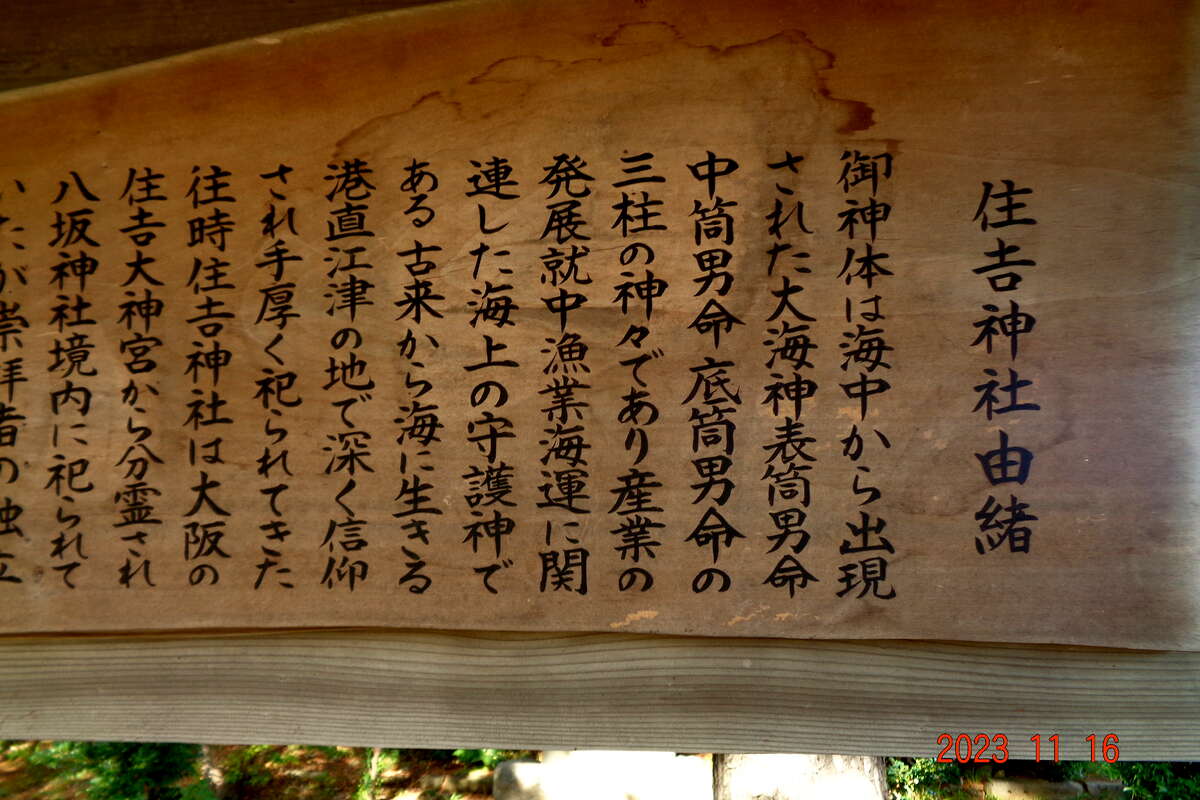 住吉神社由緒
御神体は海中から出現
された大海神表筒男命
中筒男命底筒男命の
三柱の神々であり産業の
発展就中漁業海運に関
連した海上の守護神で
ある古来から海に生きる
港直江津の地で深く信仰
され手厚く祀られてきた
往時住吉神社は大阪の
住吉大神宮から分霊され
八坂神社境内に祀られて
いたが崇拝者の独立
2023 11 16